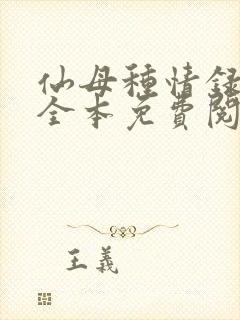 仙母種情録
全本免費閱
王義